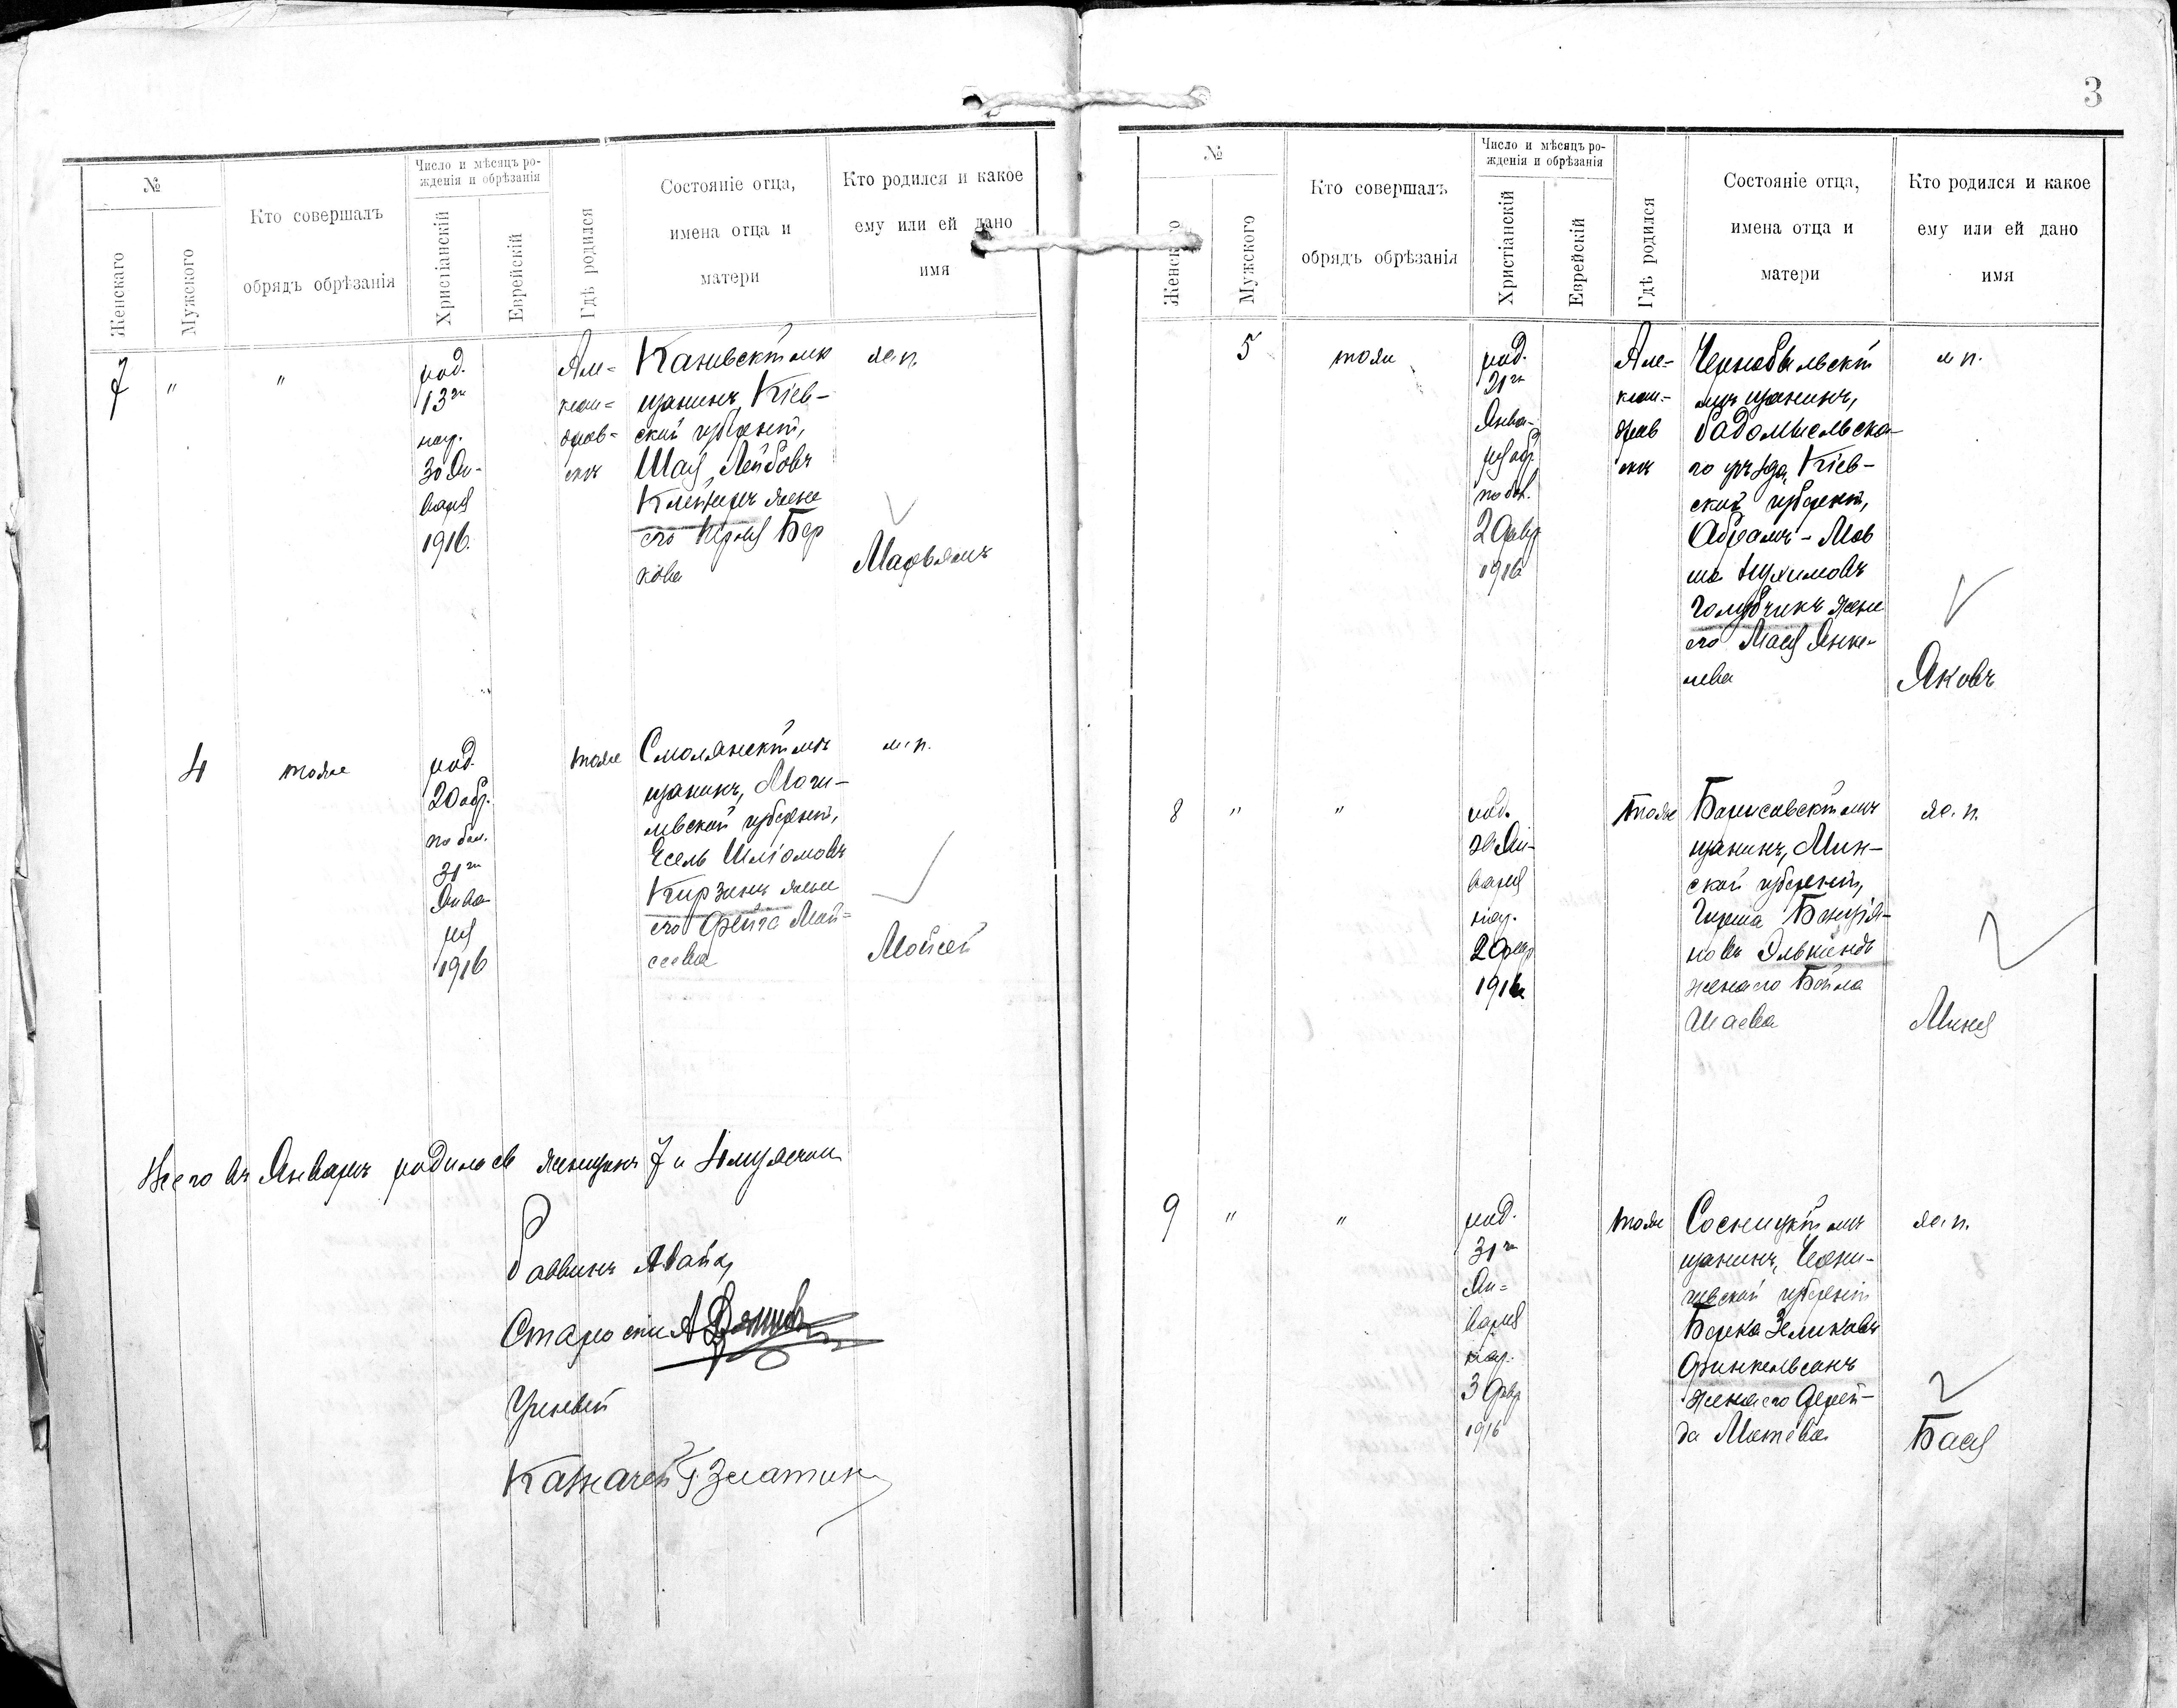 3
№
Женскаго
Мужского
Кто совершалъ
обрядъ обрѣзанія
Число и мѣсяцъ ро-
жденія и обрѣзанія
Христіанскій
Еврейскій
Гдѣ родился
Состояніе отца,
имена отца и
матери
Кто родился и какое
ему или ей дано
имя
7
"
"
род.
13го
нар.
30 Ян-
варя
1916.
Але-
ксан-
дров-
скъ
Каневскій мѣ
щанинъ, Кіев-
ской губерніи,
Шая Лейбовъ
жена
его Бер
кова
ж. п.
Марьямъ
4
тоже
род.
20 обр.
по бол.
31го
Янва
ря
1916
тоже
Смолянскій мѣ
щанинъ, Моги-
левской губерніи,
Есель Шліомовъ
Кирзинъ жена
его Фейга Мой-
сеева
м. п.
Мойсей
Всего въ Январѣ родилось женщинъ 7 и 4 мужчин
Раввинъ
Старости
Ученый
Казначей Г. Златкин
№
Женскаго
Мужского
Кто совершалъ
обрядъ обрѣзанія
Число и мѣсяцъ ро-
жденія и обрѣзанія
Христіанскій
Еврейскій
Гдѣ родился
Состояніе отца,
имена отца и
матери
Кто родился и какое
ему или ей дано
имя
5
тоже
род.
21го
Янва-
ря обр.
по бол.
2 февр
1916
Але-
ксан-
дров
скъ
Чернобыльскій
мѣщанинъ,
Радомысльска-
го уѣзда, Кіев-
ской губерніи,
Абрамъ-Мов
ша Нухимовъ
Голубчикъ жена
его Мася Янке-
лева
м п.
Яковъ
8
"
"
род.
Ян-
варя
нар.
2 февр
1916
тоже
Борисовскій мѣ
щанинъ, Мин-
ской губерніи,
Гирша
новъ Элькиндъ
жена его Бейла
Шаева
ж. п.
Миня
9
"
"
род.
31го
Ян-
варя
нар.
3 февр
1916
тоже
Сосницкій мѣ
щанинъ, Черни-
говской губерніи
Берка Зеликовъ
Финкельсонъ
жена его Фрей-
да Мотева
ж. п.
Бася